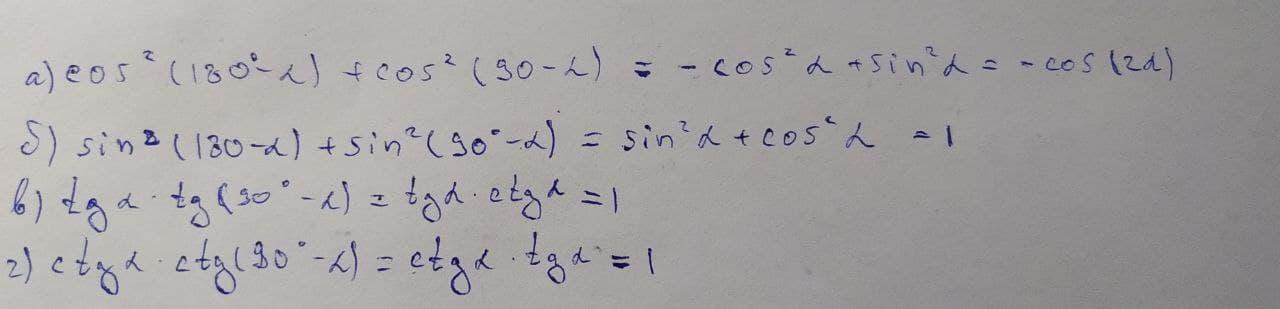 а) cos² (180° - α) + cos² (90 - α) = - cos² α + sin² α = - cos (2α)
б) sin² (180 - α) + sin² (90° - α) = sin² α + cos² α = 1
в) tg α · tg (90° - α) = tg α · ctg α = 1
г) ctg α · ctg (90° - α) = ctg α · tg α = 1